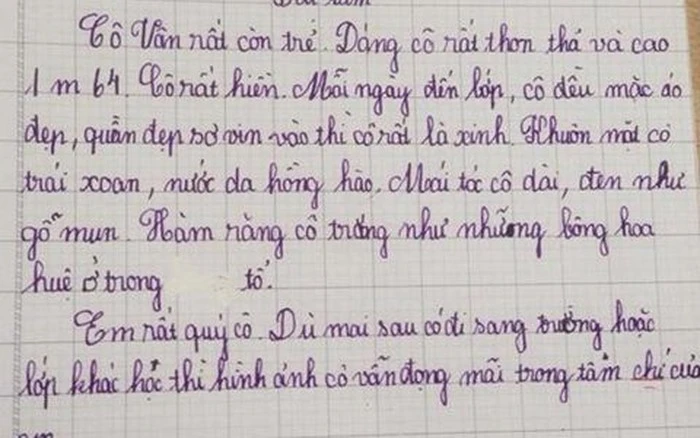 Cô Vân rất còn trẻ. Dáng cô rất thon thả và cao
1 m 64. Cô rất hiền. Mỗi ngày đến lớp, cô đều mặc áo
đẹp, quần đẹp sơ vin vào thì cô rất là xinh. Khuôn mặt cô
trái xoan, nước da hồng hào. Mái tóc cô dài, đen như
gỗ mun. Hàm răng cô trắng như những bông hoa
huệ ở trong tổ.
Em rất quý cô. Dù mai sau có đi sang trường hoặc
lớp khác học thì hình ảnh cô vẫn đọng mãi trong tâm chí của